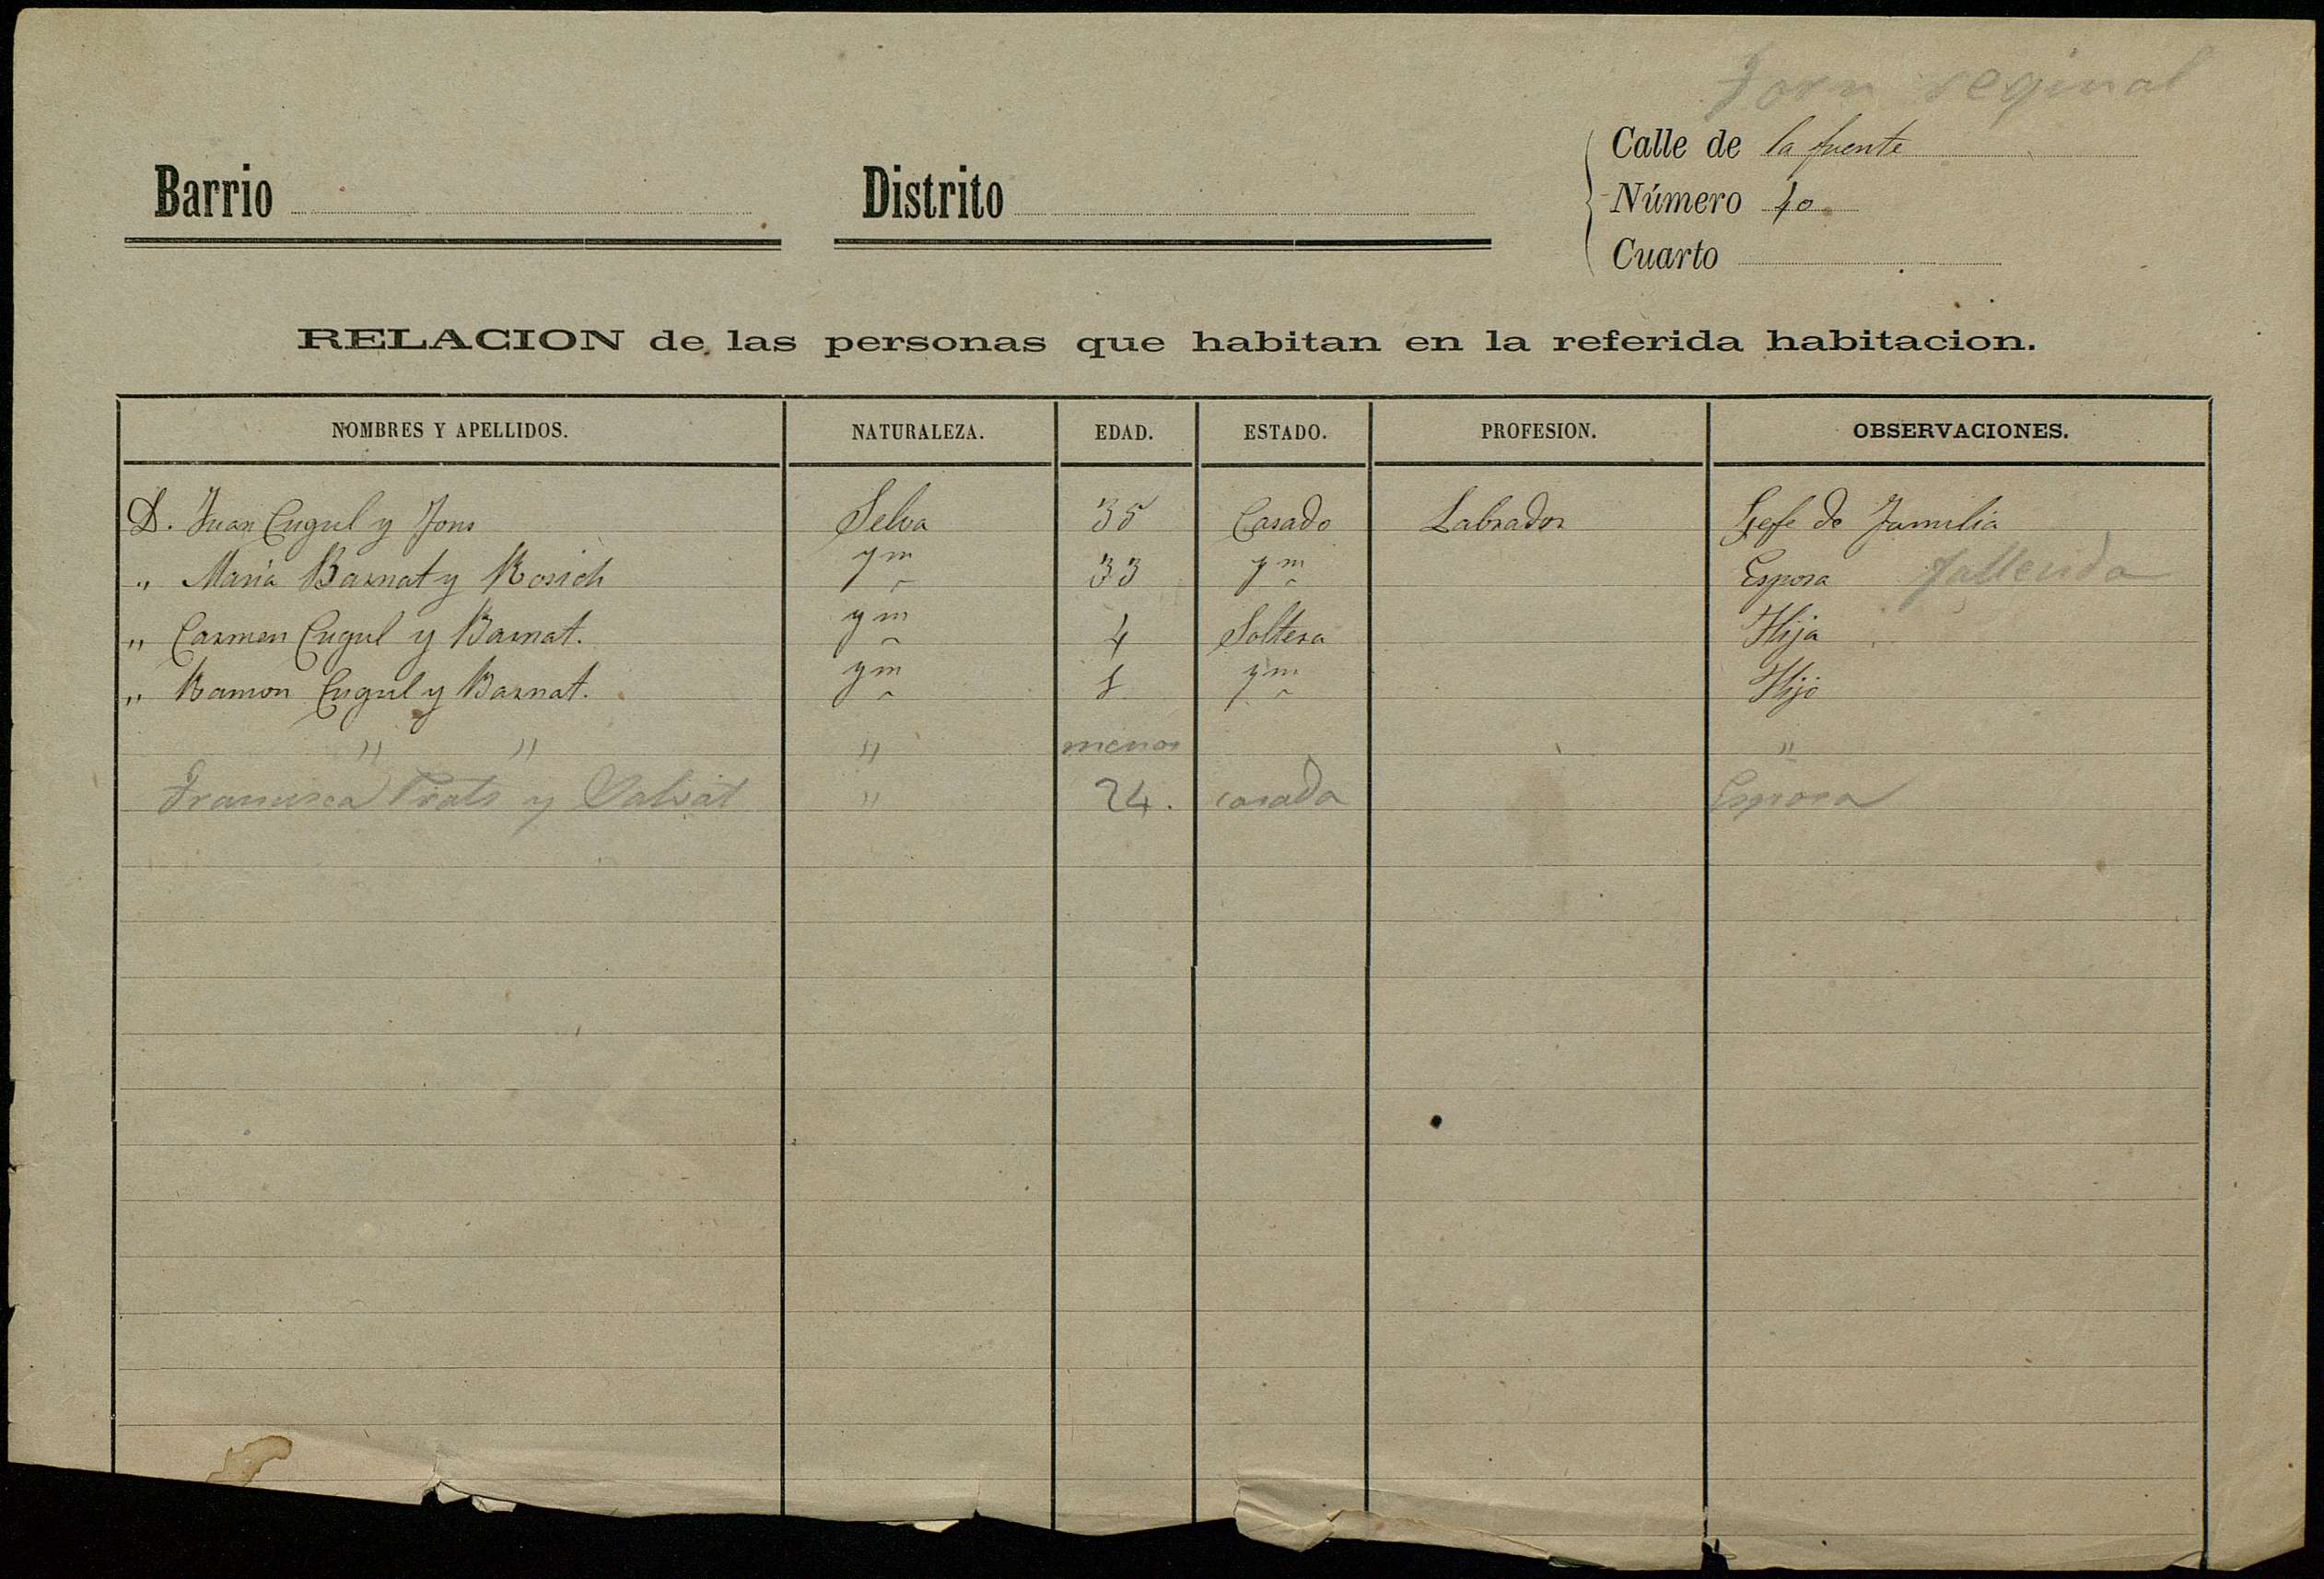 Calle de la fuente
Barrio Distrito Número 40
Cuarto
RELACION de las personas que habitan en la referida habitacion.
NOMBRES Y APELLIDOS. NATURALEZA. EDAD. ESTADO. PROFESION. OBSERVACIONES.
D. Juan Cugul y Fons Selva 35 Casado Labrador Gefe de Familia
„ Maria Barnat y Rosich ym 33 ym Esposa fallecida
„ Carmen Cugul y Barnat. ym 4 Soltera Hija
„ Ramon Cugul y Barnat. ym ym Hijo
" " " menor "
Francisca Prats y Salvat " 24. casada Esposa